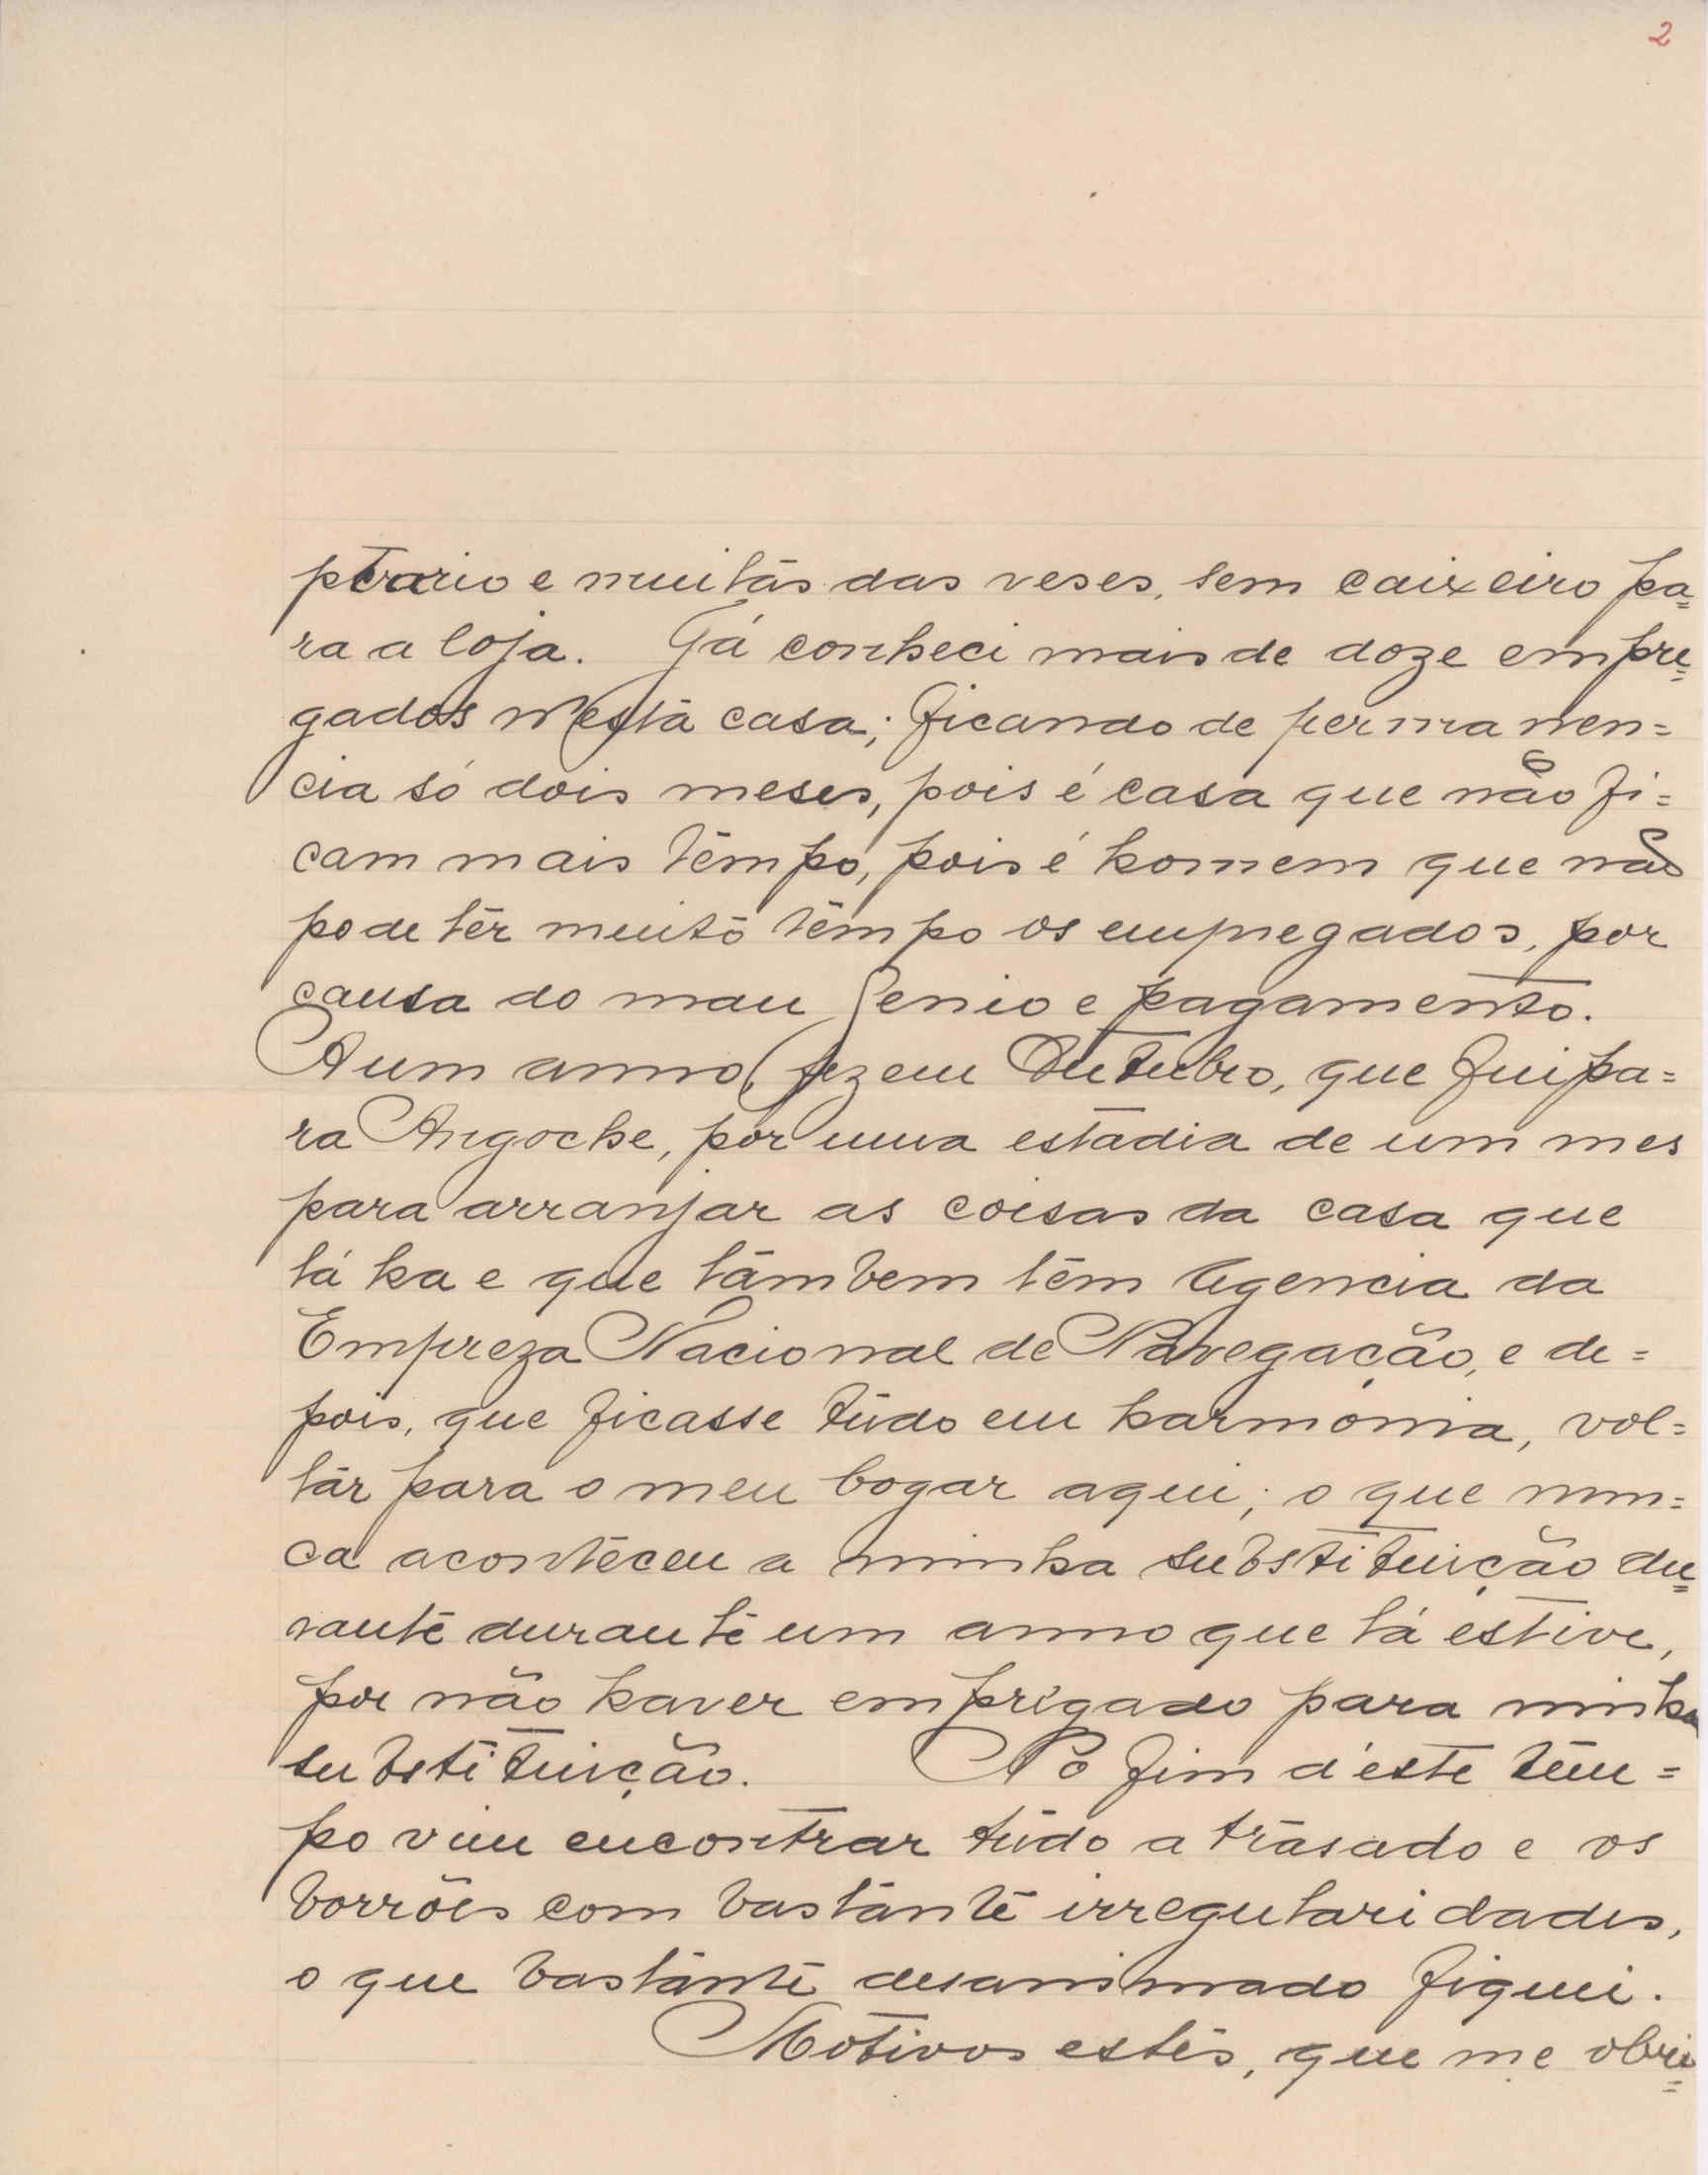 2
ptorario e muitas das veses, sem caixeiro pa=
ra a loja. Já conheci mais de doze empre=
gados n'esta casa; ficando de permanen=
cia só dois meses, pois é casa que não fi=
cam mais tempo, pois é homem que não
pode ter muito tempo os empregados, por
causa do mau genio e pagamento.
A um anno, fez em Outubro, que fui pa=
ra Angoche, por uma estadia de um mes
para arranjar as coisas da casa que
lá ha e que tambem tem Agencia da
Empreza Nacional de Navegação, e de=
pois, que ficasse tudo em harmonia, vol=
tar para o meu logar aqui; o que nun=
ca aconteceu a minha substituição du=
rante durante um anno que lá estive,
por não haver empregado para minha
substituição. No fim d'este tem=
po vim encontrar tudo atrasado e os
borrões com bastante irregularidades,
o que bastante desanimado fiquei.
Motivos estes, que me obri=